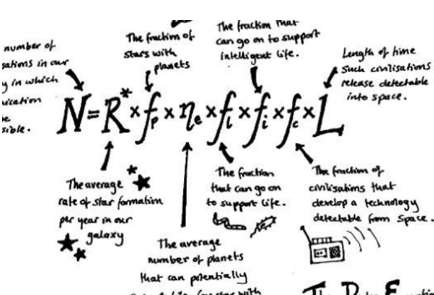 number of
sations in our
y in which
ication
e
sible.
The fraction of
stars with
planets
The fraction that
can go on to support
intelligent life.
Length of time
Such civilisations
release detectable
into space.
N=R*×fp×ne×fl×fi×fc×L
The average
rate of star formation
per year in our
galaxy
The average
number of planets
that can potentially
The fraction
that can go on
to support life.
The fraction of
civilisations that
develop a technology
detectable from space.